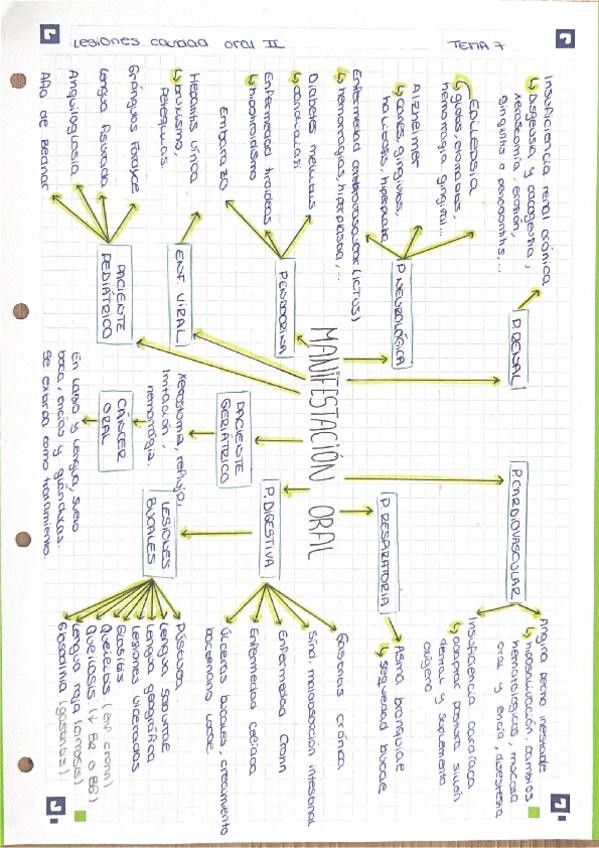 Lesiones cavidad oral II
TEMA 7
MANIFESTACIÓN ORAL
P. RENAL
Insuficiencia renal crónica
↳ disgeusia, y cacogeusia,
xerostomía, erosión,
gingivitis o periodontitis,...
P. NEUROLÓGICA
Epilepsia
↳ glositis,
hemorragia gingival...
Alzheimer
↳ caries, gingivitis,
halitosis, hiperplasia
Enfermedad cerebrovascular (ICTUS)
↳ hemorragias, hiperplasia,...
P. ENDOCRINA
Diabetes mellitus
↳ candidiasis
Enfermedad tiroidea
↳ hipotiroidismo
Embarazo
ENF. VIRAL
Hepatitis vírica
↳ bruxismo,
Petequias.
PACIENTE
PEDIÁTRICO
Gránulos Fordyce
Lengua fisurada
Anquiloglosia
Afta de Bednar
P. CARDIOVASCULAR
Angina pecho inestable
↳ hiposalivación, cambios
hemorrágicos, mucosa
oral y encía, disestesia
Insuficiencia cardíaca
↳ adaptar postura sillón
dental y suplemento
oxígeno
P. RESPIRATORIA
Asma bronquial
↳ sequedad bucal
P. DIGESTIVA
Gastritis crónica
Sínd. malabsorción intestinal
Enfermedad Crohn
Enfermedad celíaca
Úlceras bucales, crecimiento
bacteriano
LESIONES
BUCALES
Pústula
Lengua saburral
Lengua geográfica
Lesiones ulceradas
Glositis
Queilitis (enf crohn)
Queilosis (↓ B2 o B6)
Lengua roja (cirrosis)
Glosodinia (gastritis)
PACIENTE
GERIÁTRICO
Xerostomía, reflujo,
Irritación,
hemorragia.
CÁNCER
ORAL
En labio y lengua, suelo
boca, encías y glándulas.
Se extirpa como tratamiento.